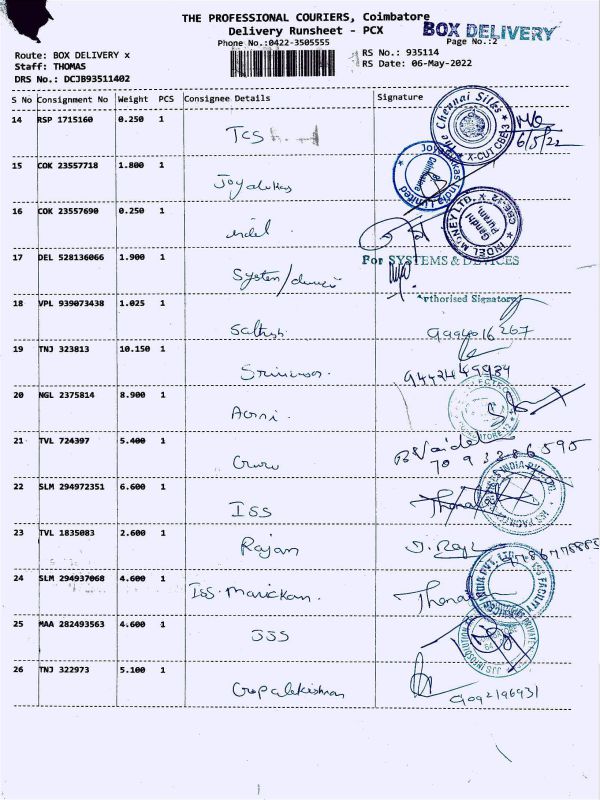 THE PROFESSIONAL COURIERS, Coimbatore
Delivery Runsheet - PCX
BOX DELIVERY
Phone No.:0422-3505555
Page No.:2
Route: BOX DELIVERY x
Staff: THOMAS
DRS No.: DCJB93511402
RS No.: 935114
RS Date: 06-May-2022
S No Consignment No Weight PCS Consignee Details Signature
14 RSP 1715160 0.250 1 TCS
The Chennai Silks
X-CUT CBE-3
6/5/22
15 COK 23557718 1.800 1 Joyalukkas
Joyalukkas India Limited
16 COK 23557690 0.250 1 indel
INDEL MONEY LTD. CBE-12
Gandhi Puram,
17 DEL 528136066 1.900 1 System/
For SYSTEMS & DEVICES
Authorised Signatory
18 VPL 939073438 1.025 1 Sathish
9994016267
19 TNJ 323813 10.150 1 Srinivasan.
9442449984
20 NGL 2375814 8.900 1
21 TVL 724397 5.400 1 Guru
7093286595
22 SLM 294972351 6.600 1 ISS
23 TVL 1835083 2.600 1 Rajan
24 SLM 294937068 4.600 1 Iss. Manickam.
25 MAA 282493563 4.600 1 JJS
26 TNJ 322973 5.100 1 Gopalakishnan
9092196931